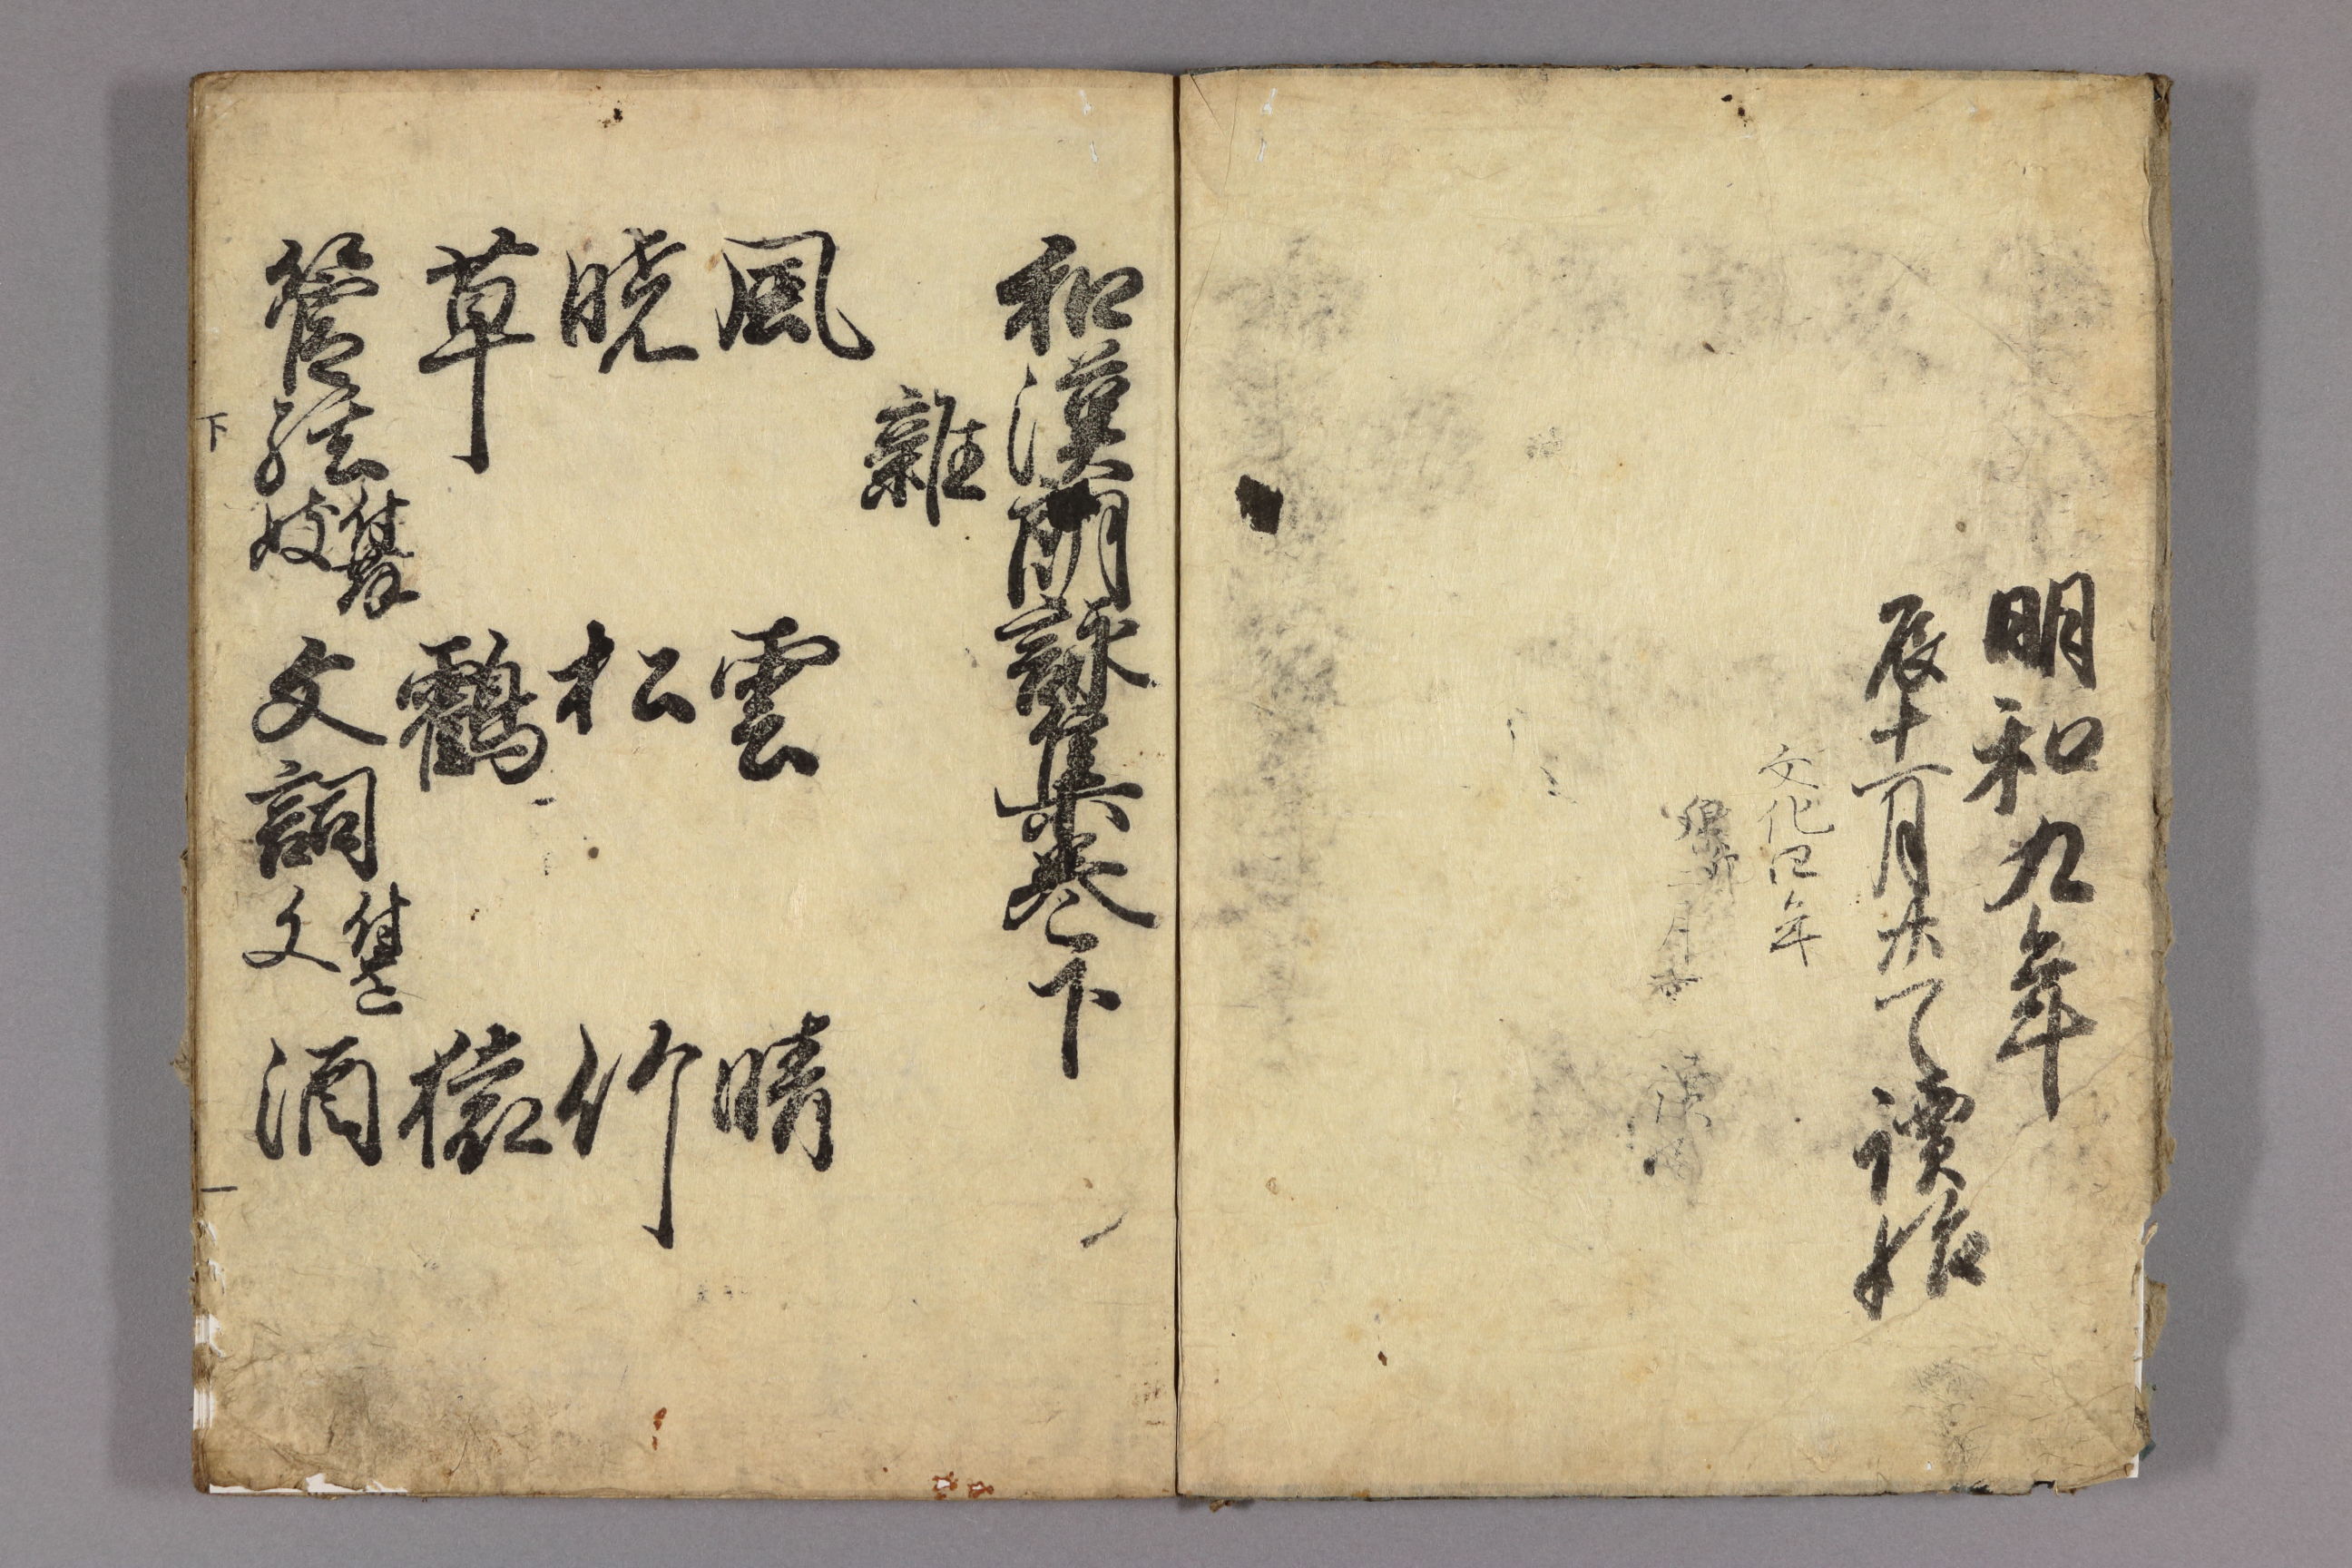 明和九年
辰十一月廿
讀始
文化四年
月
和漢朗詠集巻下
雜
風 雲 晴
曉 松 竹
草 鶴 猿
管絃 付舞妓 文詞 付遺文 酒
下
一